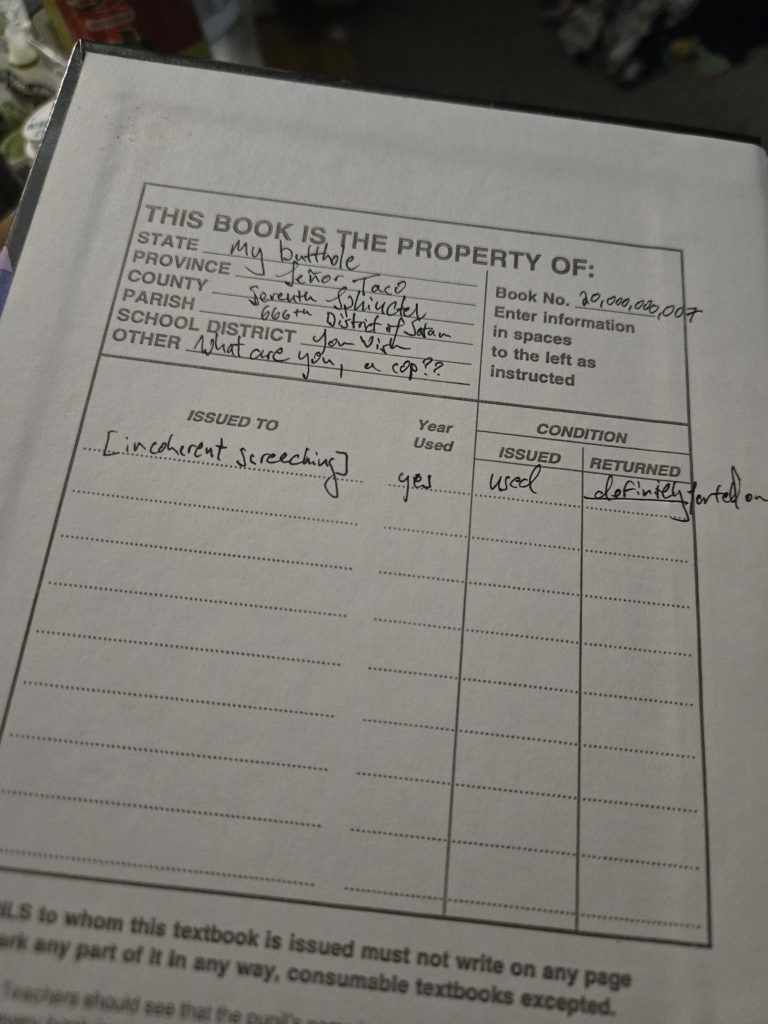 THIS BOOK IS THE PROPERTY OF:
STATE My butthole
PROVINCE Señor Taco
COUNTY Seventh Sphincter
PARISH 666th District of Satan
SCHOOL DISTRICT You Wish
OTHER What are you, a cop??
Book No. 20,000,000,007
Enter information
in spaces
to the left as
instructed
ISSUED TO
Year
Used
CONDITION
ISSUED
RETURNED
[incoherent screeching]
yes
used
definitely farted on
ILS to whom this textbook is issued must not write on any page
ark any part of it in any way, consumable textbooks excepted.
Teachers should see that the pupil's